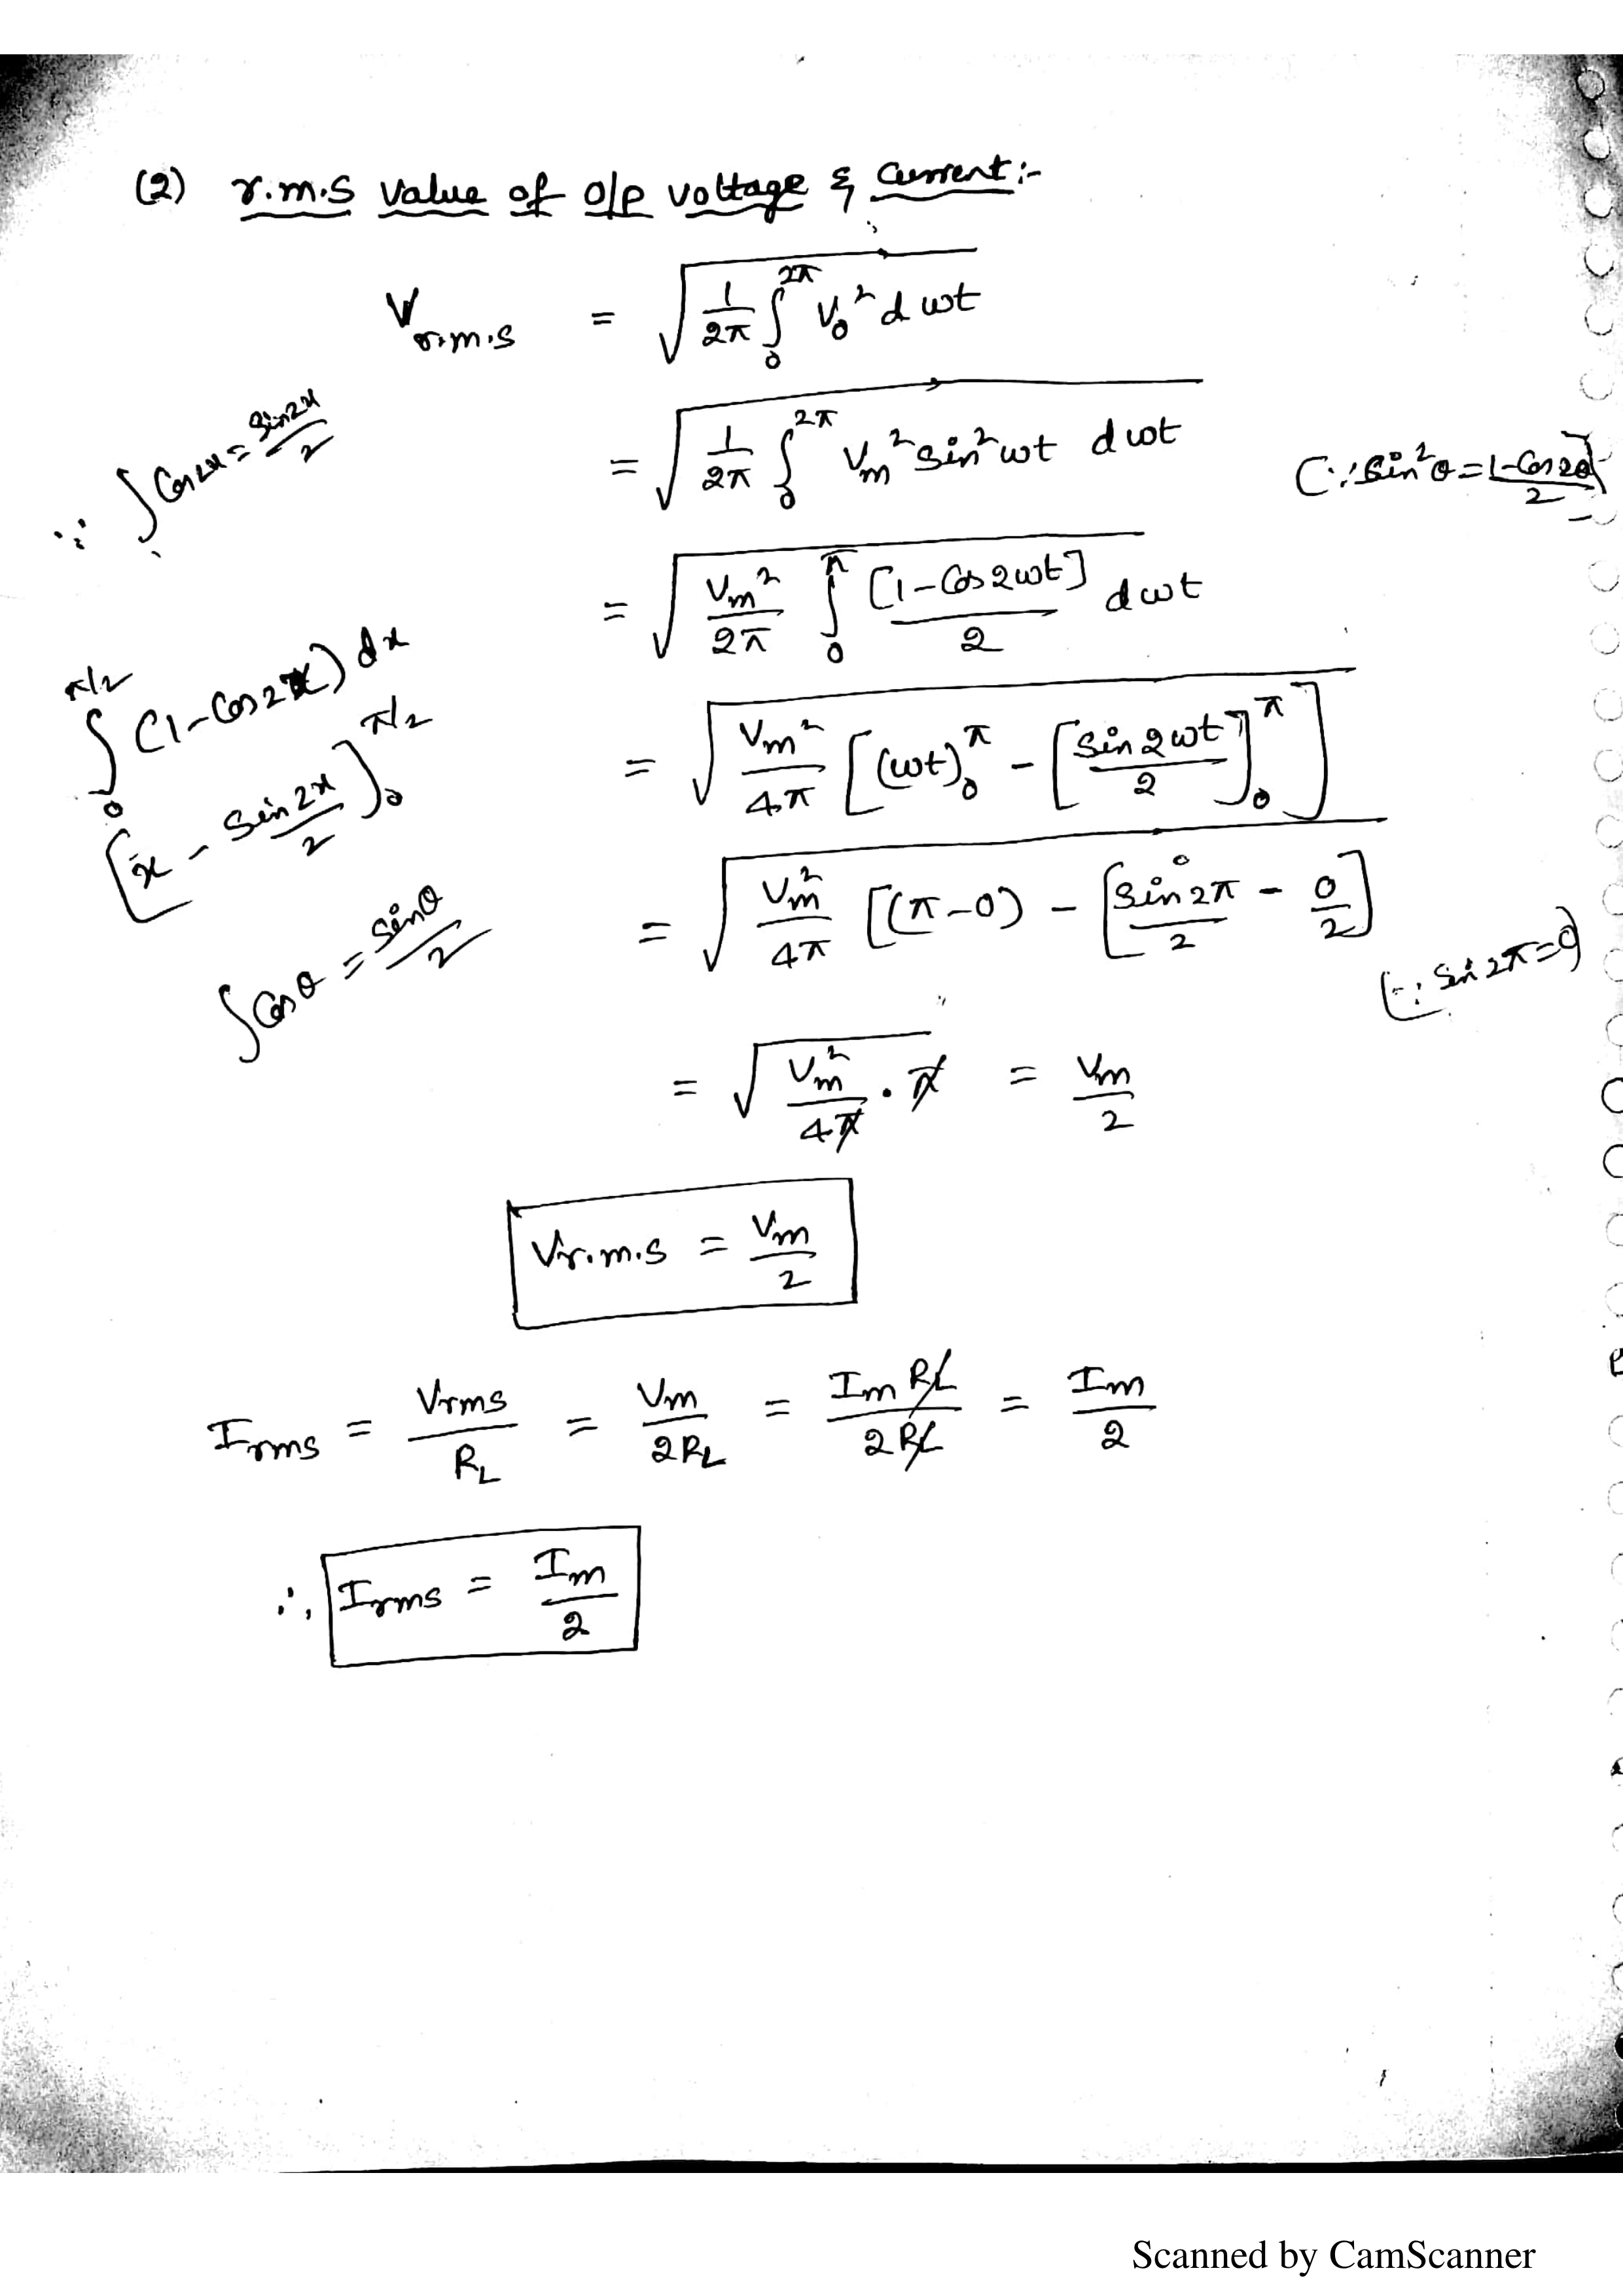 (2) r.m.s value of o/p voltage & current:-
V_{r.m.s} = \sqrt{\frac{1}{2\pi} \int_0^{2\pi} V_0^2 d\omega t}
\because \int \cos 2x = \frac{\sin 2x}{2}
= \sqrt{\frac{1}{2\pi} \int_0^{2\pi} V_m^2 \sin^2 \omega t \, d\omega t} (\because \sin^2\theta = \frac{1-\cos 2\theta}{2})
= \sqrt{\frac{V_m^2}{2\pi} \int_0^{\pi} \frac{[1-\cos 2\omega t]}{2} d\omega t}
\int_0^{\pi/2} (1-\cos 2x) dx
= \sqrt{\frac{V_m^2}{4\pi} \left[ (\omega t)_0^{\pi} - \left[\frac{\sin 2\omega t}{2}\right]_0^{\pi} \right]}
\left[x - \frac{\sin 2x}{2}\right)_0^{\pi/2}
= \sqrt{\frac{V_m^2}{4\pi} [(\pi-0) - \left[\frac{\sin 2\pi}{2} - \frac{0}{2}\right]} (\because \sin 2\pi = 0)
\int \cos\theta = \frac{\sin\theta}{2}
= \sqrt{\frac{V_m^2}{4\pi} . \pi} = \frac{V_m}{2}
V_{r.m.s} = \frac{V_m}{2}
I_{rms} = \frac{V_{rms}}{R_L} = \frac{V_m}{2R_L} = \frac{I_m R_L}{2R_L} = \frac{I_m}{2}
\therefore I_{rms} = \frac{I_m}{2}
Scanned by CamScanner